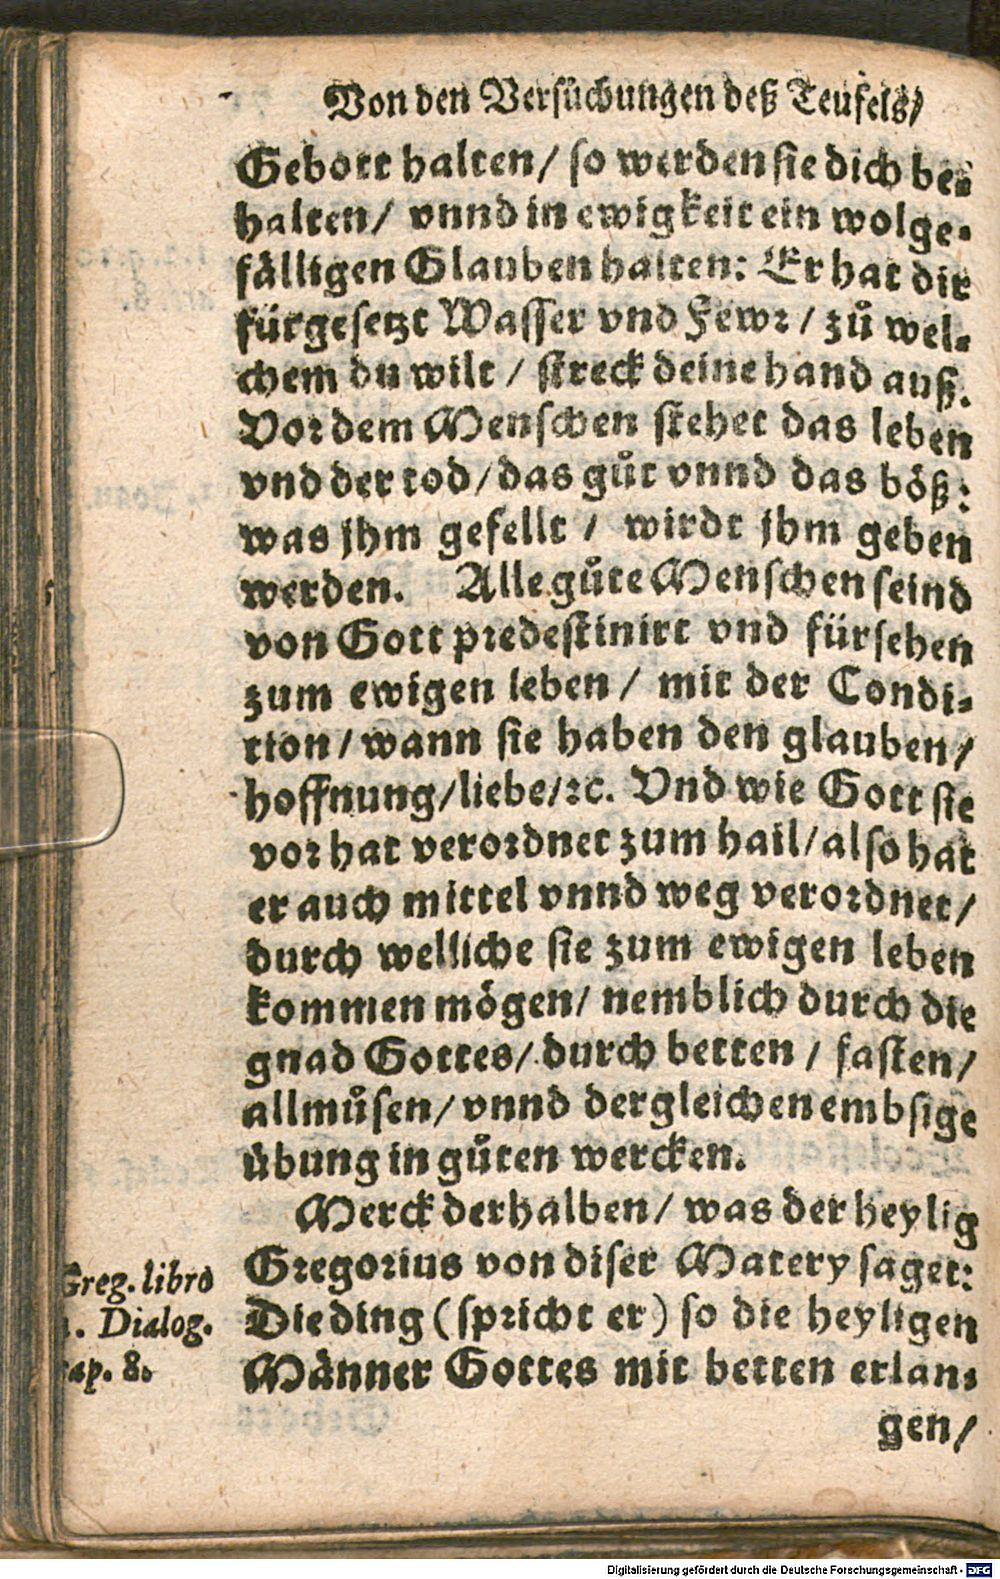 Von den Versuͤchungen deß Teufels/
Gebott halten/ so werden sie dich be-
halten/ vnnd in ewigkeit ein wolge-
fälligen Glauben halten: Er hat dir
fürgesetzt Wasser vnd Fewr / zů wel-
chem du wilt / streck deine hand auß.
Vor dem Menschen stehet das leben
vnd der tod/ das gůt vnnd das böß:
was jhm gefellt / wirdt jhm geben
werden. Alle gůte Menschen seind
von Gott predestinirt vnd fürsehen
zum ewigen leben / mit der Condi-
tion / wann sie haben den glauben/
hoffnung/ liebe/ ꝛc. Vnd wie Gott sie
vor hat verordnet zum hail/ also hat
er auch mittel vnnd weg verordnet/
durch welliche sie zum ewigen leben
kommen mögen/ nemblich durch die
gnad Gottes/ durch betten / fasten/
allmůsen/ vnnd dergleichen embsige
übung in gůten wercken.
Merck derhalben/ was der heylig
Gregorius von diser Matery saget:
Die ding (spricht er) so die heyligen
Männer Gottes mit betten erlan-
gen/
Greg. libro
1. Dialog.
cap. 8.
Digitalisierung gefördert durch die Deutsche Forschungsgemeinschaft - DFG